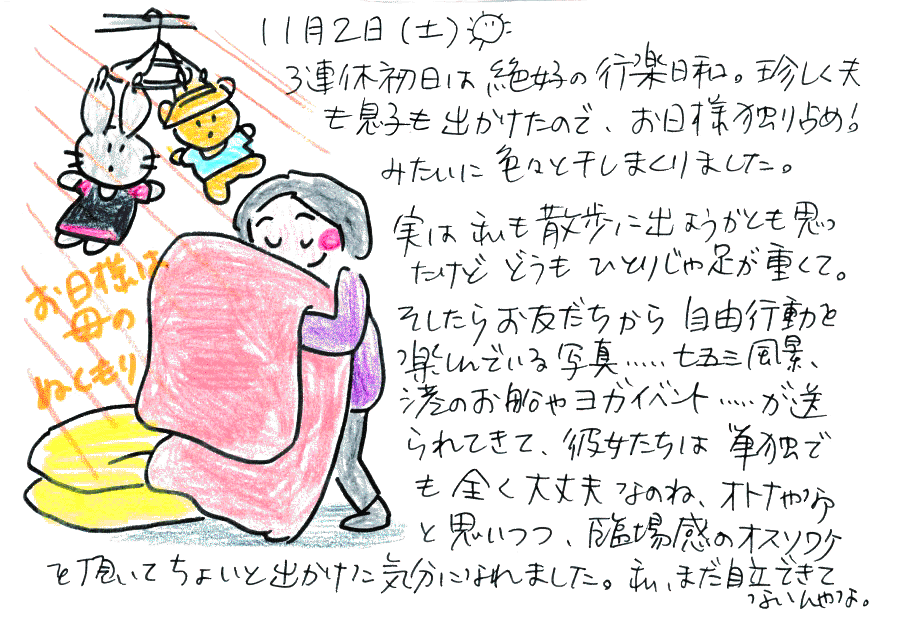 11月2日(土)
3連休初日は絶好の行楽日和。珍しく夫
も息子も出かけたので、お日様独り占め!
みたいに色々と干しまくりました。
実は私も散歩に出ようかとも思っ
たけどどうもひとりじゃ足が重くて。
そしたらお友だちから自由行動を
楽しんでいる写真……七五三風景、
港のお船やヨガイベント……が送
られてきて、彼女たちは単独で
も全く大丈夫なのね、オトナやなぁ
と思いつつ、臨場感のオスソワケ
を頂いてちょいと出かけた気分になれました。私、まだ自立できて
ないんやな。
お日様は
母の
ぬくもり